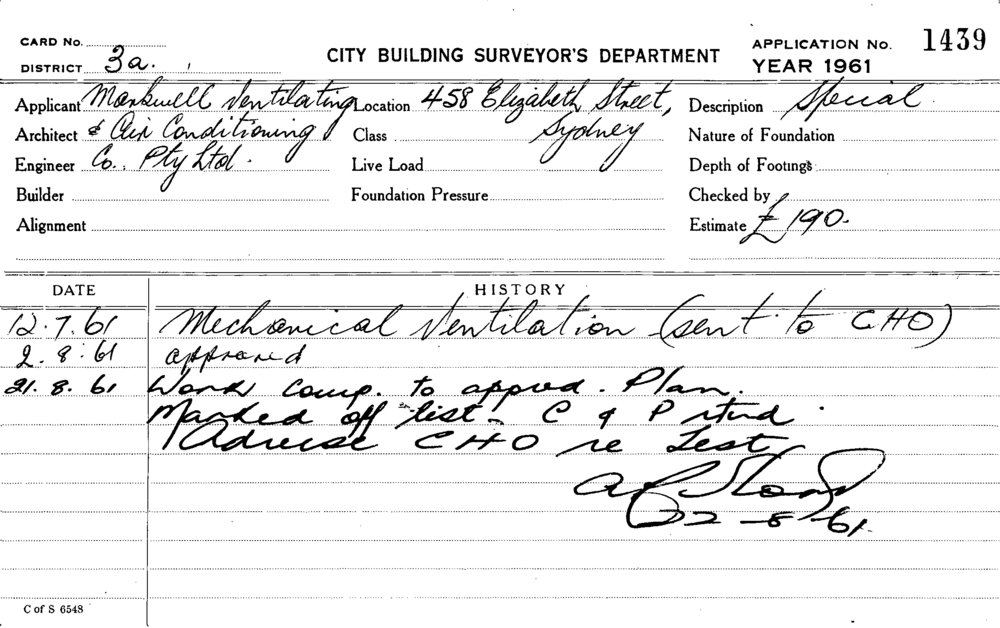 CARD No.
DISTRICT 3a.
CITY BUILDING SURVEYOR'S DEPARTMENT
APPLICATION No. 1439
YEAR 1961
Applicant Markwell Ventilating Location 458 Elizabeth Street, Description Special
Architect & Air Conditioning Class Sydney Nature of Foundation
Engineer Co. Pty Ltd. Live Load Depth of Footings
Builder Foundation Pressure Checked by
Alignment Estimate £190.
DATE HISTORY
12.7.61 Mechanical Ventilation (sent to CHO)
2.8.61 approved
21.8.61 Work comp. to approd. Plan.
Marked off list. C & P rtnd.
Advise CHO re Test
22-8-61.
C of S 6548